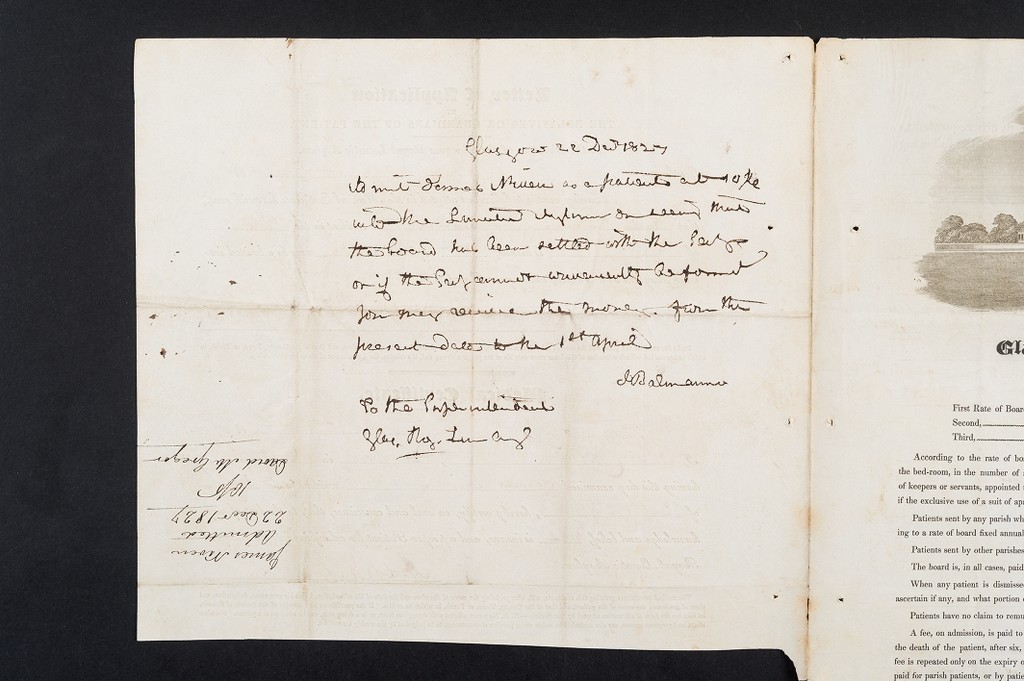 Glasgow 22 Decr 1827
Admit James Niven as a patient at 10/6
into the Lunatic Asylum on seeing that
the board has been settled with the Secy
or if the Secy cannot conveniently be found
you may receive the money. from the
present date to the 1st April
J Balmanno
To the Superintendent
Glas. Roy. Lun Asy
James Niven
Admitted
22 Decr 1827
10/6
David McGregor
Gla
First Rate of Boar
Second,
Third,
According to the rate of bo
the bed-room, in the number of
of keepers or servants, appointed
if the exclusive use of a suit of ap
Patients sent by any parish wh
ing to a rate of board fixed annual
Patients sent by other parishes
The board is, in all cases, paid
When any patient is dismisse
ascertain if any, and what portion
Patients have no claim to remu
A fee, on admission, is paid to
the death of the patient, after six,
fee is repeated only on the expiry o
paid for parish patients, or by patie